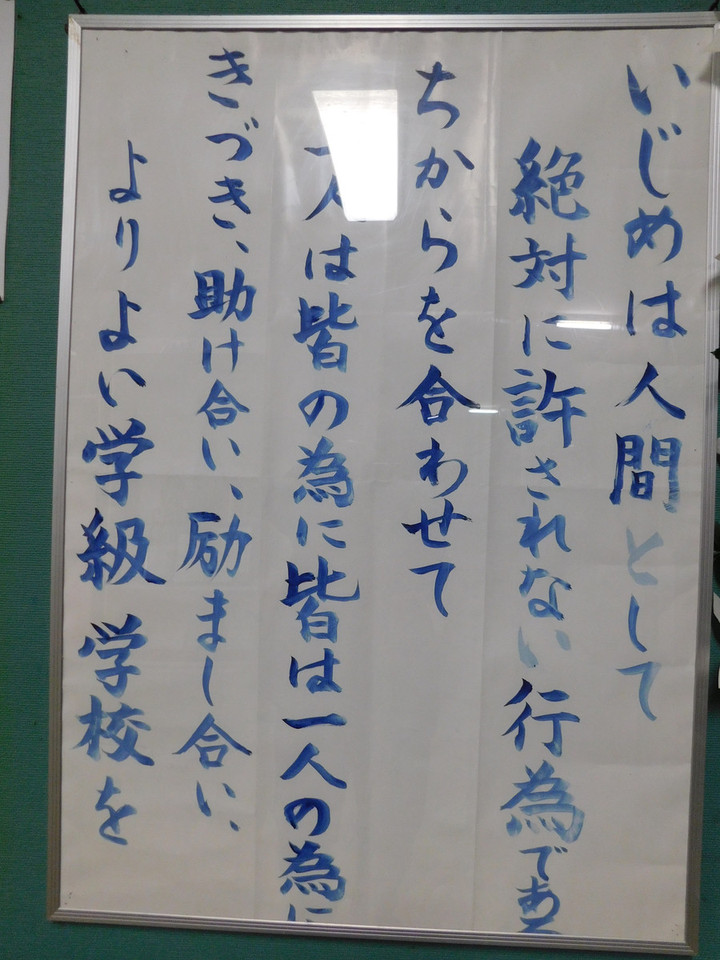 いじめは人間として
絶対に許されない行為である
ちからを合わせて
一人は皆の為に皆は一人の為に
きづき、助け合い、励まし合い、
よりよい学級 学校を